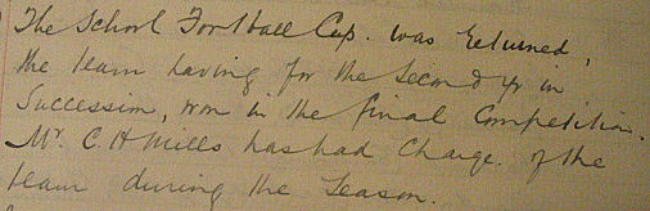 The School Football Cup. was returned,
the team having for the second yr in
Succession, won in the final Competition.
Mr. C. H Mills has had Charge. of the
team during the Season.